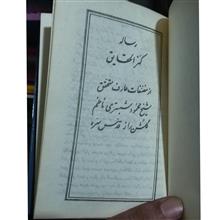 رساله
کنز الحقایق
از مصنفات عارف محقق
شیخ محمود شبستری ناظم
گلشن راز قدس سره